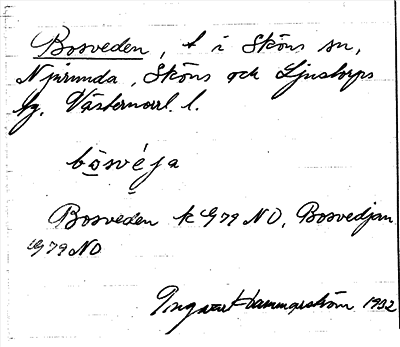 Bosveden, t i Sköns sn,
Njurunda, Sköns och Ljustorps
tg. Västernorrl. l.
bo̱své̱ja
Bosveden k G79 NO, Bosvedjan
G79 NO
Ingvar Hammarström 1932